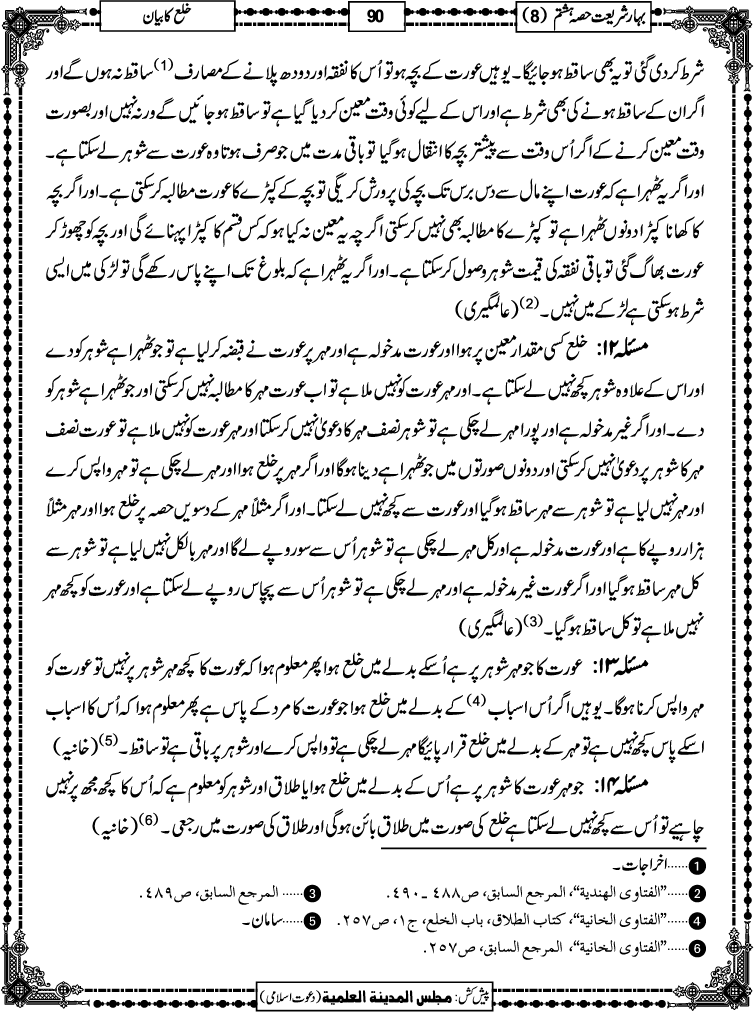 بہار شریعت حصہ ہشتم (8)
90
خلع کا بیان
شرط کر دی گئی تو یہ بھی ساقط ہو جائیگا۔ یوہیں عورت کے بچہ ہو تو اُس کا نفقہ اور دودھ پلانے کے مصارف (1) ساقط نہ ہوں گے اور
اگر ان کے ساقط ہونے کی بھی شرط ہے اور اس کے لیے کوئی وقت معین کر دیا گیا ہے تو ساقط ہو جائیں گے ورنہ نہیں اور بصورت
وقت معین کرنے کے اگر اُس وقت سے پیشتر بچہ کا انتقال ہوگیا تو باقی مدت میں جو صرف ہوتا وہ عورت سے شوہر لے سکتا ہے۔
اور اگر یہ ٹھہرا ہے کہ عورت اپنے مال سے دس برس تک بچہ کی پرورش کریگی تو بچہ کے کپڑے کا عورت مطالبہ کرسکتی ہے۔ اور اگر بچہ
کا کھانا کپڑا دونوں ٹھہرا ہے تو کپڑے کا مطالبہ بھی نہیں کرسکتی اگرچہ یہ معین نہ کیا ہو کہ کس قسم کا کپڑا پہنائے گی اور بچہ کو چھوڑ کر
عورت بھاگ گئی تو باقی نفقہ کی قیمت شوہر وصول کرسکتا ہے۔ اور اگر یہ ٹھہرا ہے کہ بلوغ تک اپنے پاس رکھے گی تو لڑکی میں ایسی
شرط ہوسکتی ہے لڑکے میں نہیں۔ (2) (عالمگیری)
مسئلہ ۱۲: خلع کسی مقدار معین پر ہوا اور عورت مدخولہ ہے اور مہر پر عورت نے قبضہ کر لیا ہے تو جو ٹھہرا ہے شوہر کو دے
اور اس کے علاوہ شوہر کچھ نہیں لے سکتا ہے۔ اور مہر عورت کو نہیں ملا ہے تو اب عورت مہر کا مطالبہ نہیں کرسکتی اور جو ٹھہرا ہے شوہر کو
دے۔ اور اگر غیر مدخولہ ہے اور پورا مہر لے چکی ہے تو شوہر نصف مہر کا دعویٰ نہیں کرسکتا اور مہر عورت کو نہیں ملا ہے تو عورت نصف
مہر کا شوہر پر دعویٰ نہیں کرسکتی اور دونوں صورتوں میں جو ٹھہرا ہے دینا ہوگا اور اگر مہر پر خلع ہوا اور مہر لے چکی ہے تو مہر واپس کرے
اور مہر نہیں لیا ہے تو شوہر سے مہر ساقط ہوگیا اور عورت سے کچھ نہیں لے سکتا۔ اور اگر مثلاً مہر کے دسویں حصہ پر خلع ہوا اور مہر مثلاً
ہزار روپے کا ہے اور عورت مدخولہ ہے اور کل مہر لے چکی ہے تو شوہر اُس سے سو روپے لے گا اور مہر بالکل نہیں لیا ہے تو شوہر سے
کل مہر ساقط ہوگیا اور اگر عورت غیر مدخولہ ہے اور مہر لے چکی ہے تو شوہر اُس سے پچاس روپے لے سکتا ہے اور عورت کو کچھ مہر
نہیں ملا ہے تو کل ساقط ہوگیا۔ (3) (عالمگیری)
مسئلہ ۱۳: عورت کا جو مہر شوہر پر ہے اُسکے بدلے میں خلع ہوا پھر معلوم ہوا کہ عورت کا کچھ مہر شوہر پر نہیں تو عورت کو
مہر واپس کرنا ہوگا۔ یوہیں اگر اُس اسباب (4) کے بدلے میں خلع ہوا جو عورت کا مرد کے پاس ہے پھر معلوم ہوا کہ اُس کا اسباب
اسکے پاس کچھ نہیں ہے تو مہر کے بدلے میں خلع قرار پائیگا مہر لے چکی ہے تو واپس کرے اور شوہر پر باقی ہے تو ساقط۔ (5) (خانیہ)
مسئلہ ۱۴: جو مہر عورت کا شوہر پر ہے اُس کے بدلے میں خلع ہوا یا طلاق اور شوہر کو معلوم ہے کہ اُس کا کچھ مجھ پر نہیں
چاہیے تو اُس سے کچھ نہیں لے سکتا ہے خلع کی صورت میں طلاق بائن ہوگی اور طلاق کی صورت میں رجعی۔ (6) (خانیہ)
1 ......اخراجات۔
2 ......"الفتاوی الهندية"، المرجع السابق، ص۴۸۸ ـ ۴۹۰.
3 ...... المرجع السابق، ص۴۸۹.
4 ......"الفتاوی الخانية"، كتاب الطلاق، باب الخلع، ج۱، ص۲۵۷.
5 ......سامان۔
6 ......"الفتاوی الخانية"، المرجع السابق، ص۲۵۷.
پیش کش: مجلس المدينة العلمية (دعوت اسلامی)